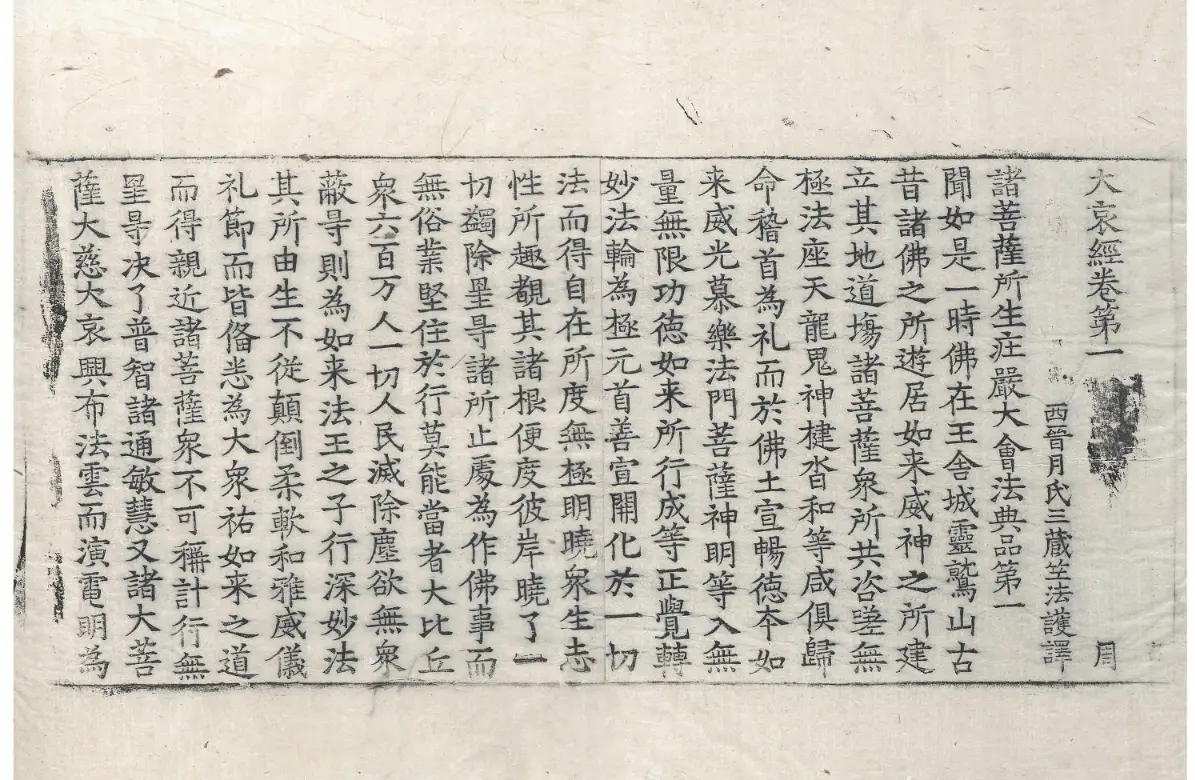 大哀經卷第一　周
西晉月氏三藏竺法護譯
諸菩薩所生㽵嚴大會法典品第一
聞如是一時佛在王舍城靈鷲山古
昔諸佛之所遊居如来威神之所建
立其地道塲諸菩薩衆所共咨嗟無
極法座天龍鬼神揵沓和等咸俱歸
命稽首為礼而於佛土宣暢德夲如
来威光慕樂法門菩薩神明等入無
量無限功德如来所行成等正覺轉
妙法輪為極元首善宣開化於一切
法而得自在所度無極明曉衆生志
性所趣覩其諸根便度彼岸曉了一
切蠲除罣㝵諸所止處為作佛事而
無俗業堅住於行莫能當者大比丘
衆六百万人一切人民滅除塵欲無衆
蔽㝵則為如来法王之子行深妙法
其所由生不從顛倒柔軟和雅威儀
礼節而皆俻悉為大衆祐如来之道
而得親近諸菩薩衆不可稱計行無
罣㝵决了普智諸通敏慧又諸大菩
薩大慈大哀興布法雲而演電明為